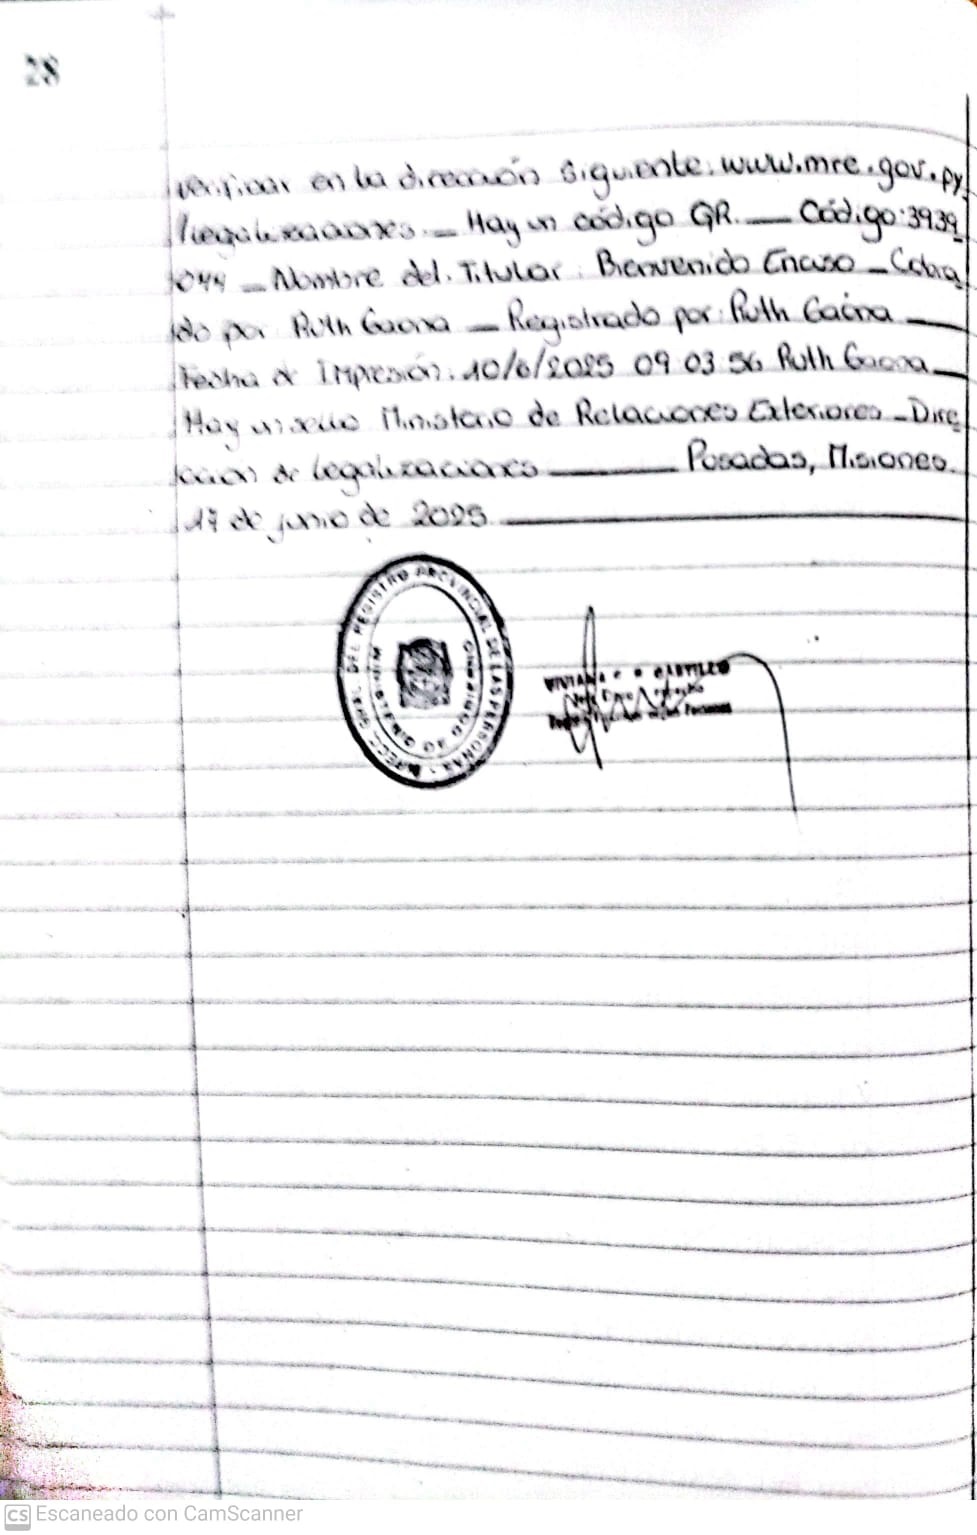 28
verificar en la dirección siguiente: www.mre.gov.py
/legalizaciones. — Hay un código QR. — Código: 3939
1044 — Nombre del Titular: Bienvenido Enciso — Cobra
do por Ruth Gaona — Registrado por: Ruth Gaona —
Fecha de Impresión: 10/6/2025 09:03:56 Ruth Gaona —
Hay un sello Ministerio de Relaciones Exteriores — Dire
cción de legalizaciones — Posadas, Misiones.
17 de junio de 2025. —
DEL REGISTRO PROVINCIAL DE LAS PERSONAS
MINISTERIO DE GOBIERNO
CASTILLO
CS Escaneado con CamScanner